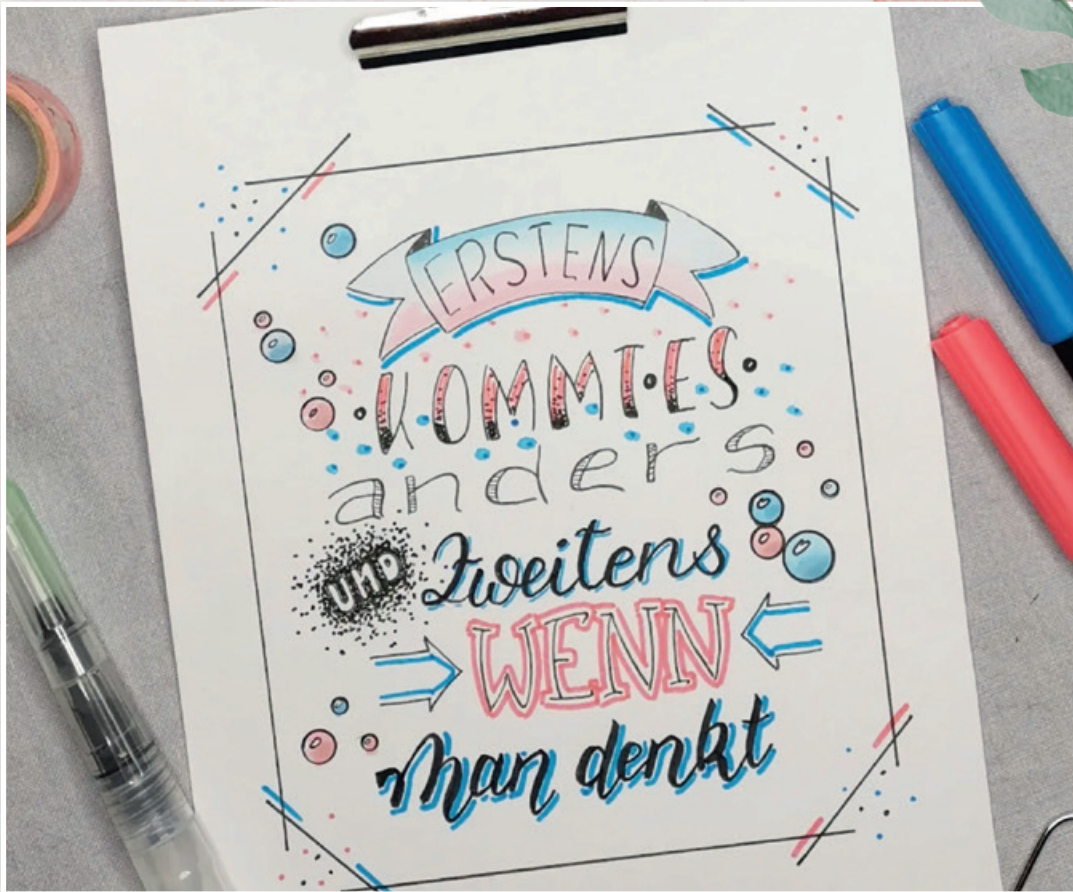 ERSTENS
KOMMT ES
anders
UND Zweitens
WENN
Man denkt